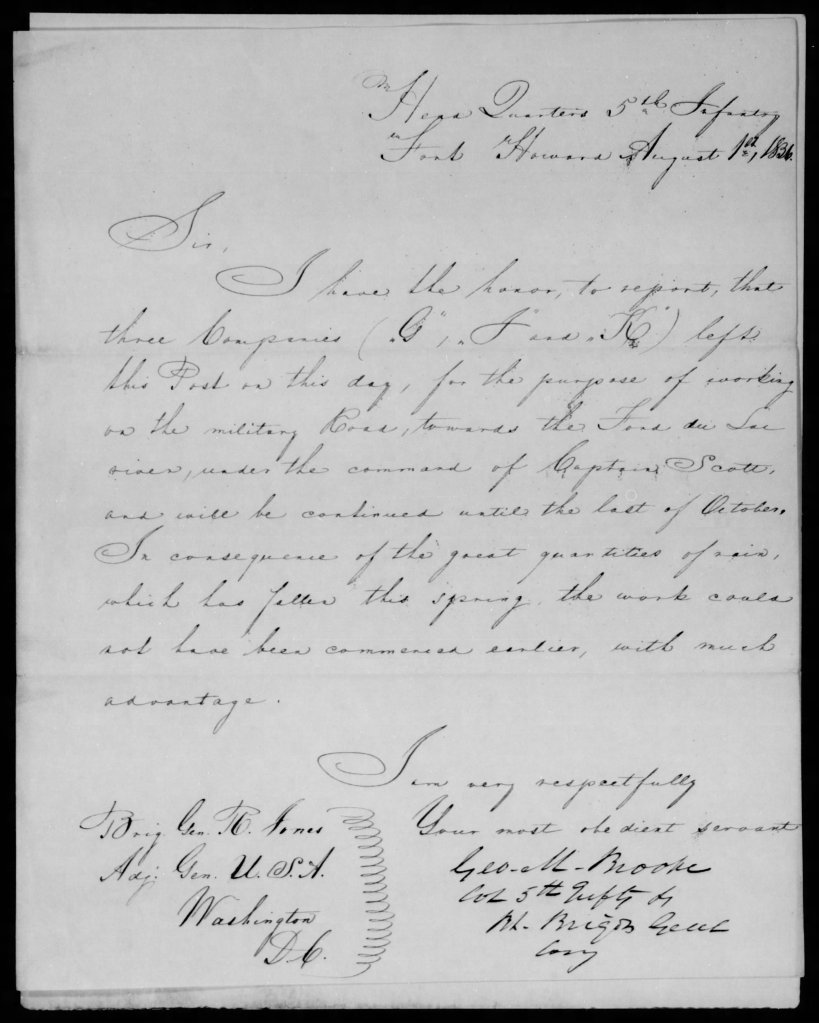 Head Quarters 5th Infantry
Fort Howard August 1st, 1836.
Sir,
I have the honor, to report, that
three Companies („G", „I" and „K") left
this Post on this day, for the purpose of working
on the military Road, towards the Fond du Lac
river, under the command of Captain Scott,
and will be continued until the last of October.
In consequence of the great quantities of rain,
which has fallen this spring, the work could
not have been commenced earlier, with much
advantage.
I am very respectfully
Your most obedient servant
Geo. M. Brooke
Col 5th Infty &
Bt. Brigd Genl
Comg
Brig. Gen. R. Jones
Adj. Gen. U.S.A.
Washington
D.C.